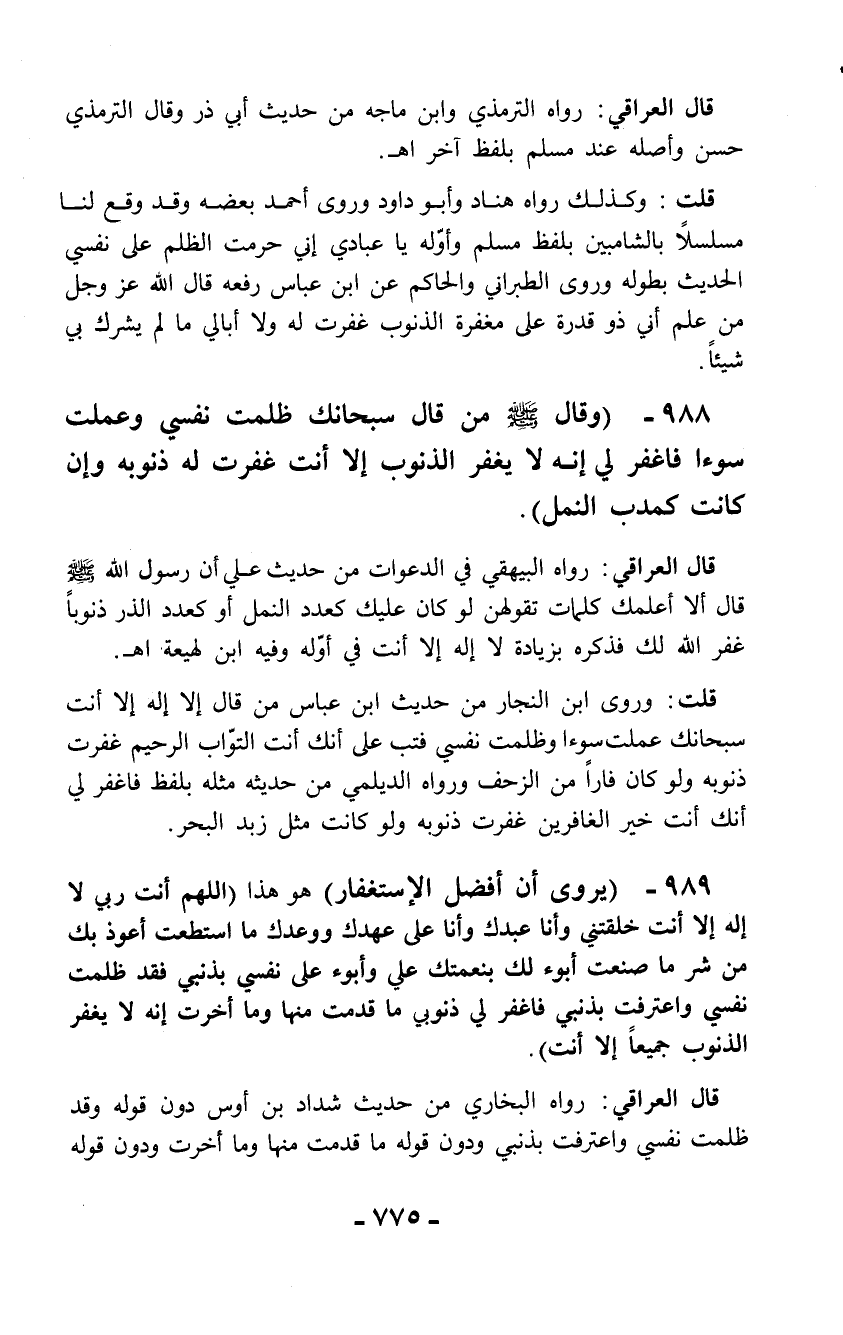 قال العراقي: رواه الترمذي وابن ماجه من حديث أبي ذر وقال الترمذي
حسن وأصله عند مسلم بلفظ آخر اهـ.
قلت: وكذلك رواه هناد وأبو داود وروى أحمد بعضه وقد وقع لنا
مسلسلاً بالشاميين بلفظ مسلم وأوّله يا عبادي إني حرمت الظلم على نفسي
الحديث بطوله وروى الطبراني والحاكم عن ابن عباس رفعه قال الله عز وجل
من علم أني ذو قدرة على مغفرة الذنوب غفرت له ولا أبالي ما لم يشرك بي
شيئاً.
٩٨٨ - (وقال ﷺ من قال سبحانك ظلمت نفسي وعملت
سوءا فاغفر لي إنه لا يغفر الذنوب إلا أنت غفرت له ذنوبه وإن
كانت كمدب النمل).
قال العراقي: رواه البيهقي في الدعوات من حديث علي أن رسول الله ﷺ
قال ألا أعلمك كلمات تقولهن لو كان عليك كعدد النمل أو كعدد الذر ذنوباً
غفر الله لك فذكره بزيادة لا إله إلا أنت في أوّله وفيه ابن لهيعة اهـ.
قلت: وروى ابن النجار من حديث ابن عباس من قال إلا إله إلا أنت
سبحانك عملت سوءا وظلمت نفسي فتب على أنك أنت التوّاب الرحيم غفرت
ذنوبه ولو كان فاراً من الزحف ورواه الديلمي من حديثه مثله بلفظ فاغفر لي
أنك أنت خير الغافرين غفرت ذنوبه ولو كانت مثل زبد البحر.
٩٨٩ - (يروى أن أفضل الإستغفار) هو هذا (اللهم أنت ربي لا
إله إلا أنت خلقتني وأنا عبدك وأنا على عهدك ووعدك ما استطعت أعوذ بك
من شر ما صنعت أبوء لك بنعمتك علي وأبوء على نفسي بذنبي فقد ظلمت
نفسي واعترفت بذنبي فاغفر لي ذنوبي ما قدمت منها وما أخرت إنه لا يغفر
الذنوب جميعاً إلا أنت).
قال العراقي: رواه البخاري من حديث شداد بن أوس دون قوله وقد
ظلمت نفسي واعترفت بذنبي ودون قوله ما قدمت منها وما أخرت ودون قوله
- ٧٧٥ -